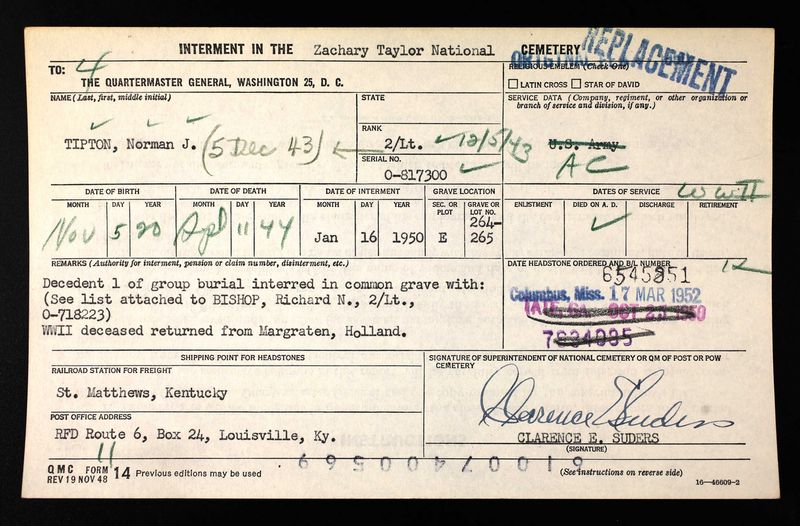 INTERMENT IN THE Zachary Taylor National CEMETERY
REPLACEMENT
TO: 4
THE QUARTERMASTER GENERAL, WASHINGTON 25, D. C.
RELIGIOUS EMBLEM (Check One)
☐ LATIN CROSS ☐ STAR OF DAVID
NAME (Last, first, middle initial)
TIPTON, Norman J. (5 Dec 43)
STATE
RANK
2/Lt. 12/5/43
SERIAL NO.
O-817300
SERVICE DATA (Company, regiment, or other organization or
branch of service and division, if any.)
U.S. Army
AC
DATE OF BIRTH DATE OF DEATH DATE OF INTERMENT GRAVE LOCATION DATES OF SERVICE WWII
MONTH DAY YEAR MONTH DAY YEAR MONTH DAY YEAR SEC. OR PLOT GRAVE OR LOT NO. ENLISTMENT DIED ON A. D. DISCHARGE RETIREMENT
Nov 5 20 Apl 11 44 Jan 16 1950 E 264-265
REMARKS (Authority for interment, pension or claim number, disinterment, etc.)
Decedent 1 of group burial interred in common grave with:
(See list attached to BISHOP, Richard N., 2/Lt.,
O-718223)
WWII deceased returned from Margraten, Holland.
DATE HEADSTONE ORDERED AND B/L NUMBER
6545851
Columbus, Miss. 17 MAR 1952
TATE, GA.
SHIPPING POINT FOR HEADSTONES
RAILROAD STATION FOR FREIGHT
St. Matthews, Kentucky
POST OFFICE ADDRESS
RFD Route 6, Box 24, Louisville, Ky.
11
SIGNATURE OF SUPERINTENDENT OF NATIONAL CEMETERY OR QM OF POST OR POW
CEMETERY
Clarence E Suders
CLARENCE E. SUDERS
(SIGNATURE)
QMC FORM 14 Previous editions may be used
REV 19 NOV 48
61007400569
(See instructions on reverse side)
16—46609-2